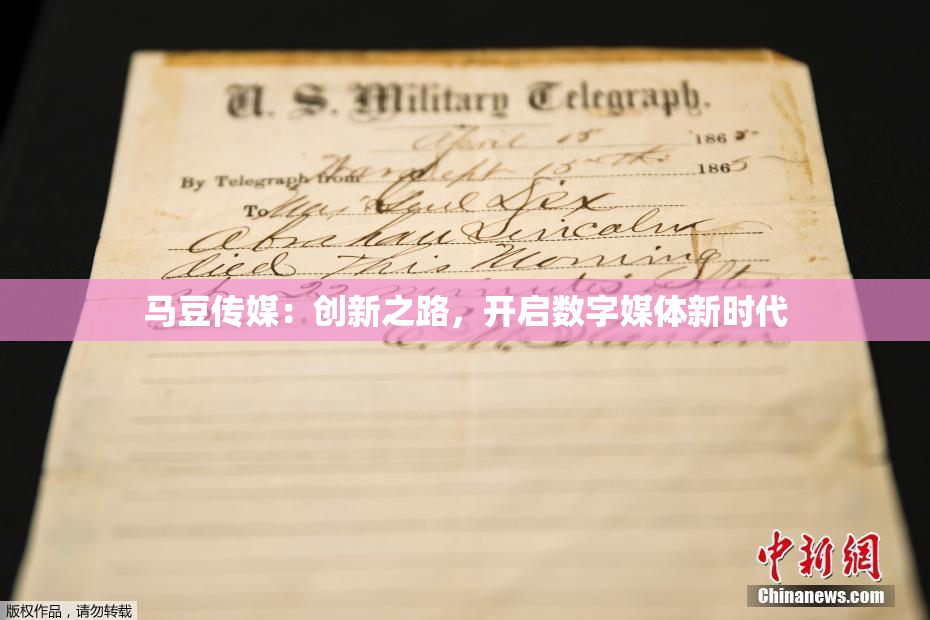 U. S. Military Telegraph.
April 15 1865
By Telegraph from War Dept 15th 1865
To Maj Genl Dix
Abraham Lincoln
died this Morning
at 22 minutes after
马豆传媒：创新之路，开启数字媒体新时代
E. M. Stanton
中新网
Chinanews.com
版权作品，请勿转载